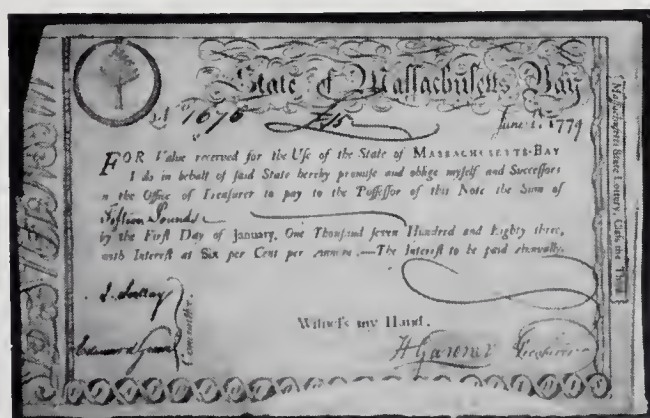 State of Massachusetts Bay
N 1676 £15 June 1. 1779
FOR Value received for the Uſe of the State of MASSACHUSETTS-BAY
I do in behalf of ſaid State hereby promiſe and oblige myſelf and Succeſſors
n the Office of Treaſurer to pay to the Poſſeſſor of this Note the Sum of
Fifteen Pounds
by the Firſt Day of January, One Thouſand ſeven Hundred and Eighty three,
with Intereſt at Six per Cent per Annum.—The Intereſt to be paid Annually.
Committee
Witneſs my Hand.
H Gardner Treaſurer
Maſſachuſetts State Lottery, Claſs the